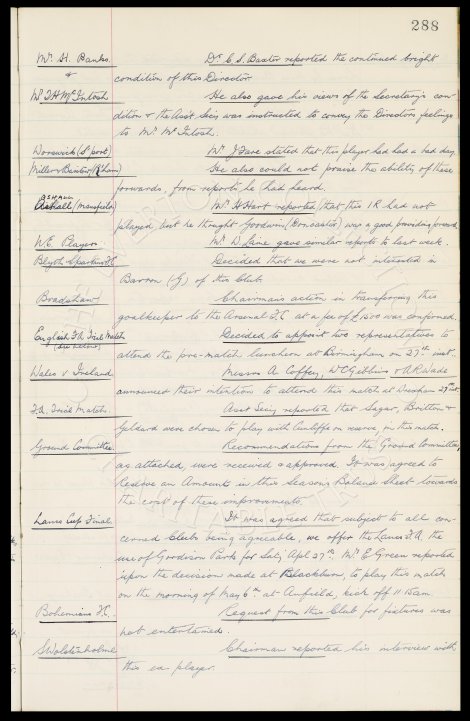 288
Mr. H. Banks. Dr. C. S. Baxter reported the continued bright
& condition of this Director
Mr T. H. McIntosh He also gave his views of the Secretary's con-
dition & the Asst Secy was instructed to convey the Directors feelings
to Mr. McIntosh.
Worswick (S'port) Mr J Fare stated that this player had had a bad day.
Miller & Baxter (R'ham) He also could not praise the ability of these
forwards, from reports he had heard.
(Mansfield) Mr H Hart reported that this I.R had not
played, but he thought Goodwin (Doncaster) was a good providing forward.
W.E. Players Mr D. Laine gave similar reports to last week.
Blyth Spartans F.C Decided that we were not interested in
Barron (G) of this Club.
Bradshaw Chairmans action in transferring this
goalkeeper to the Arsenal F.C. at a fee of £ was confirmed.
English F.A. Trial Match Decided to appoint two representatives to
(see below)
attend the pre-match luncheon at Birmingham on 27th inst.
Wales v Ireland. Messrs A Coffey, W C Gibbins & A R Wade
announced their intention to attend this match at Wrexham 27th inst.
F.A. Trial Match. Asst Secy reported that Sagar, Britton &
Geldard were chosen to play with Cunliffe as reserve, in this match.
Ground Committee. Recommendations from the Ground Committee,
as attached, were received & approved. It was agreed to
Reserve an Amount in this Seasons Balance Sheet towards
the cost of these improvements.
Lancs Cup Final. It was agreed that subject to all con-
cerned Clubs being agreeable, we offer the Lancs F.A. the
use of Goodison Park for Sat, Apl 27th. Mr. E Green reported
upon the decision made at Blackburn, to play this match
on the morning of May 6th at Anfield, kick off 11.15am.
Bohemians F.C. Request from this Club for fixtures was
not entertained.
S Wolstenholme. Chairman reported his interview with
this ex. player.